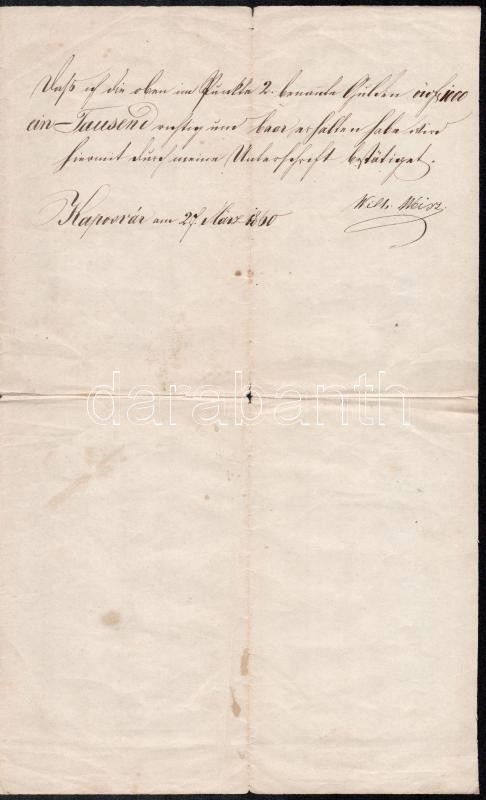 Daß ich die oben im Punkte 2. benannte Gulden 1000
ein-Tausend richtig und baar erhalten habe wird
hiermit durch meine Unterschrift bestätiget.
Kaposvár am 27. März 1860
Wilh. Weisz
darabanth